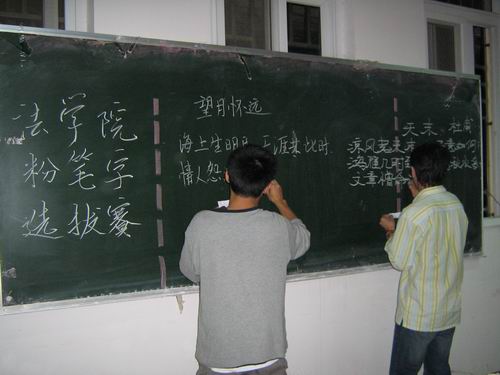 法学院
粉笔字
选拔赛
望月怀远
海上生明月 天涯共此时
情人怨
天末 杜甫
凉风起天末 如何
鸿雁几时到 水多
文章憎命